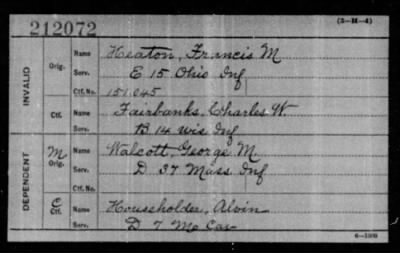 212072 (3-H-4)
INVALID
Orig. Name Heaton, Francis M
Serv. E 15 Ohio Inf
Ctf. No. 151.045
Ctf. Name Fairbanks, Charles W.
Serv. B 14 Wis Inf
DEPENDENT
M Orig. Name Walcott, George M.
Serv. D 37 Mass Inf
Ctf. No.
C Ctf. Name Householder, Alvin
Serv. D 7 Mo Cav